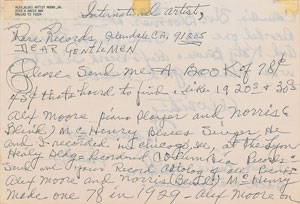 International artist,
Rare Records, Glendale CA, 91205
DEAR GENTLEMEN
Please Send me A BOOK of 78s
45s that's hard to find, like 1920s and 30s
Alex Moore piano Player and Norris
Blind) McHenry Blues Singer He
and I recorded in Chicago,
Healy Bldg Recording Columbia Records
Send me your Record Catolog of
Alex Moore and Norris McHenry
make one 78 in 1929 - Alex Moore on